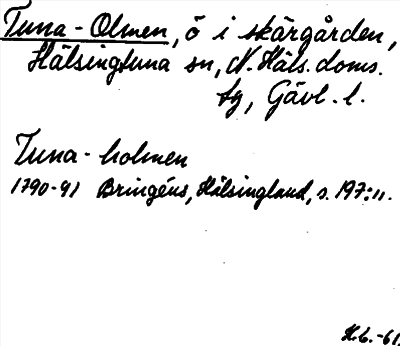 Tuna-Olmen, ö i skärgården,
Hälsingtuna sn, N. Häls. doms.
tg, Gävl. l.
Tuna-holmen
1790-91 Bringéus, Hälsingland, s. 197:11.
H.L.-61